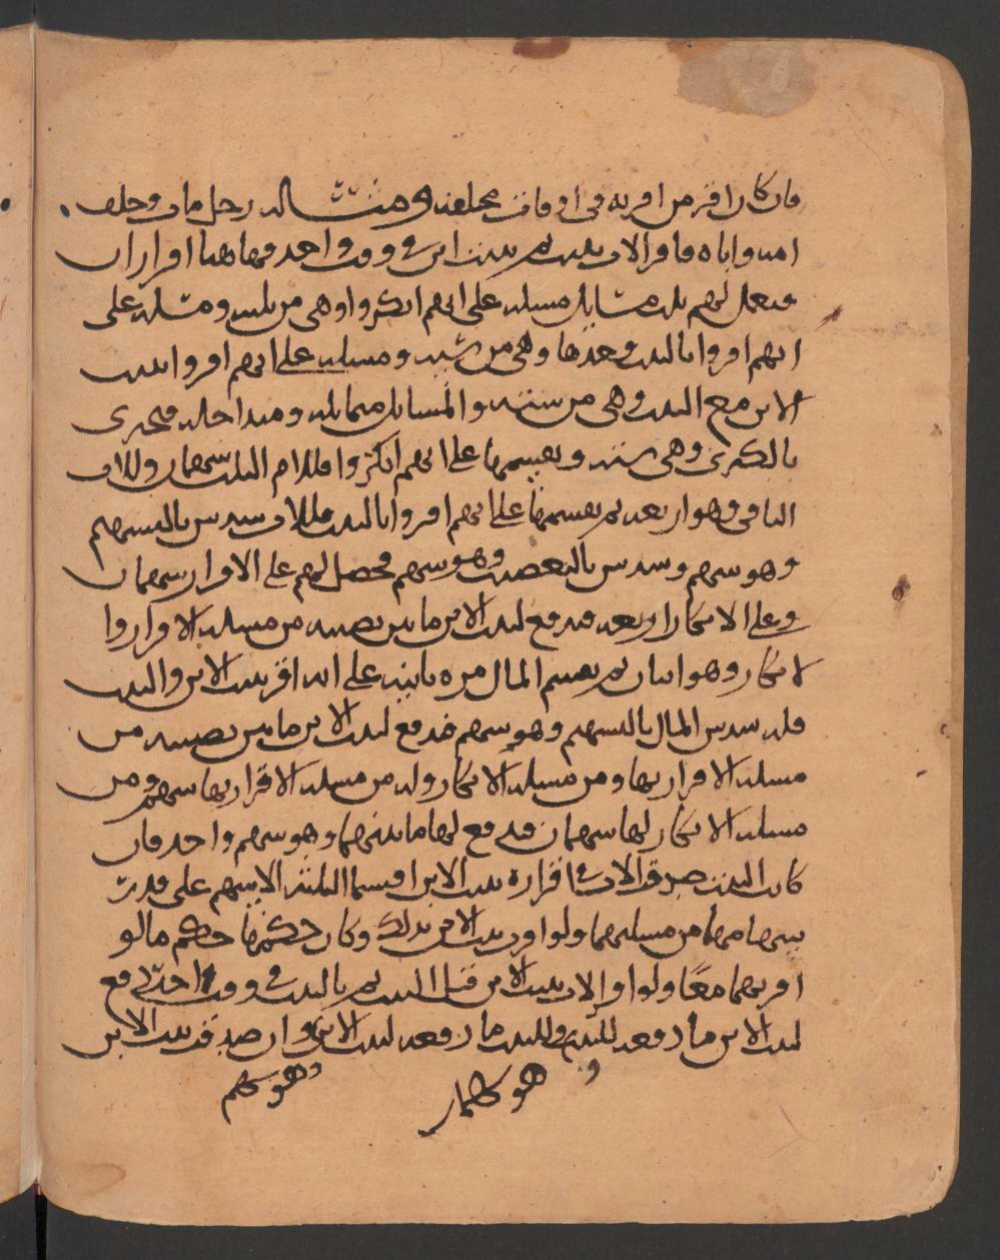 فان كان اقر من اقر به فى اوقات مختلفه ومثاله رجل مات وخلف
امه واباه فاقر الاب ببنت ثم ببنت ابن فى وقت واحد فهاهنا اقراران
فتعمل لهم ثلث مسايل مسله على انهم انكروا وهى من ثلثه ومسله على
انهم اقروا بالبنت وحدها وهى من سته ومسله على انهم اقروا ببنت
الابن مع البنت وهى من سته والمسايل متماثله ومتداخله فتجزى
بالكبرى وهى سته وتقسمها على انهم انكروا فللام الثلث سهمان وللاب
الباقى وهو اربعه ثم تقسمها على انهم اقروا بالبنت فللاب سدس بالسهم
وهو سهم وسدس بالتعصيب وهو سهم فحصل لهم على الاقرار سهمان
وعلى الانكار اربعه فدفع لبنت الابن ما بين نصيبه من مسله الاقرار وا
لانكار وهو اثنان ثم تقسم المال مره ثانيه على انه اقر ببنت الابن والبنت
فله سدس المال بالسهم وهو سهم فدفع لبنت الابن ما بين نصيبه من
مسله الاقرار بها ومن مسله الانكار وله من مسله الاقرار بها سهم ومن
مسله الانكار لها سهمان فدفع لها ما بينهما وهو سهم واحد فان
كانت البنت صدقت الاب فى اقراره ببنت الابن اقتسما الثلثه الاسهم على قدر
سهامهما من مسلتهما ولو اقرت بنت الابن بذلك وكان حكمها حكم ما لو
اقر بهما معًا ولو اقر الاب ببنت الابن قبل البنت ثم بالبنت فى وقت اخر دفع
لبنت الابن ما دفعه للبنت وللبنت ما دفعه لبنت الابن وان صدقت بنت الابن
وهو سهم
و هو